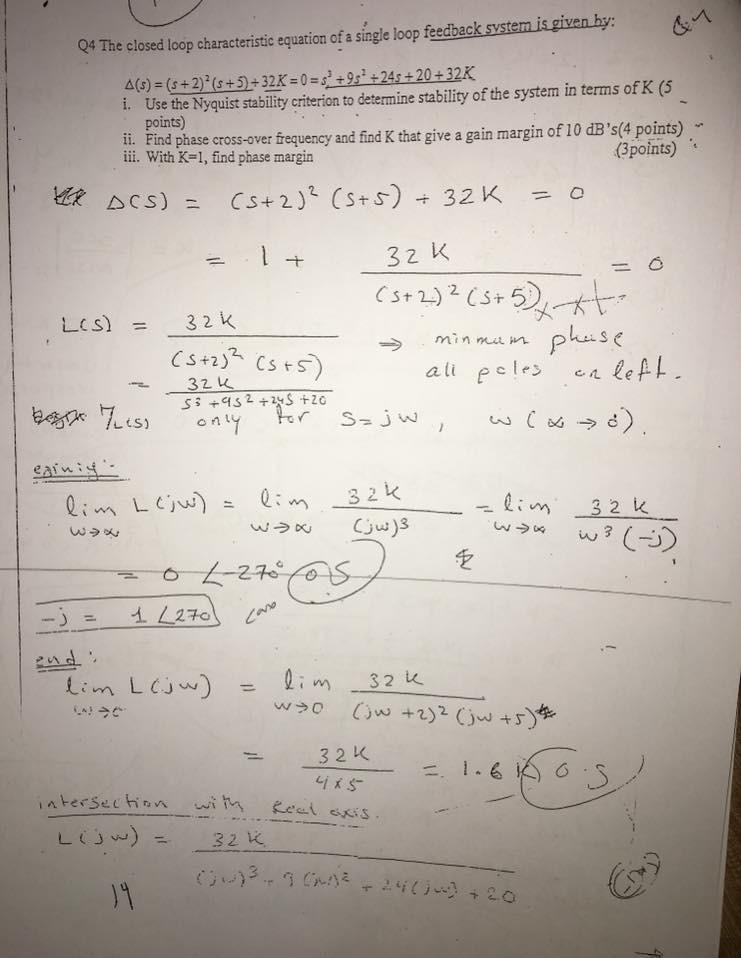 Q4 The closed loop characteristic equation of a single loop feedback system is given by:
Δ(s) = (s+2)²(s+5)+32K = 0 = s³+9s²+24s+20+32K
i. Use the Nyquist stability criterion to determine stability of the system in terms of K (5
points)
ii. Find phase cross-over frequency and find K that give a gain margin of 10 dB's(4 points)
iii. With K=1, find phase margin (3points)
Δ(S) = (S+2)² (S+5) + 32K = 0
= 1 + 32K / (S+2)² (S+5) = 0
L(S) = 32K / (S+2)² (S+5) ⇒ minmum phase
all poles on left.
= 32K / S³+9S²+24S+20
L(S) only for S=jw, w(∞→0).
lim w→∞ L(jw) = lim w→∞ 32K / (jw)³ = lim w→∞ 32K / w³(-j)
= 0 ∠-270° 0.5
-j = 1∠270
end:
lim w→0 L(jw) = lim w→0 32K / (jw+2)² (jw+5)
= 32K / 4×5 = 1.6K 0.5
intersection with Real axis.
L(jw) = 32K / (jw)³+9(jw)²+24(jw)+20
14